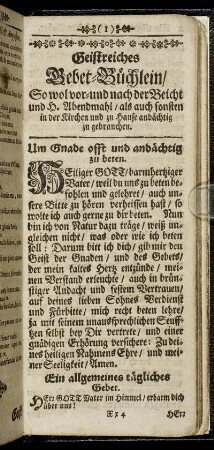 ( 1 )
Geistreiches
Gebet-Büchlein/
So wol vor-und nach der Beicht
und H. Abendmahl / als auch sonsten
in der Kirchen und zu Hause andächtig
zu gebrauchen.
Um Gnade offt und andächtig
zu beten.
HEiliger GOTT/ barmhertziger
Vater/ weil du uns zu beten be-
fohlen und gelehret/ auch un-
sere Bitte zu hören verheissen hast/ so
wolte ich auch gerne zu dir beten. Nun
bin ich von Natur dazu träge/ weiß un-
gleichen nicht/ was oder wie ich beten
soll: Darum bitt ich dich/ gib mir den
Geist der Gnaden/ und des Gebets/
der mein kaltes Hertz entzünde/ mei-
nen Verstand erleuchte/ auch in brün-
stiger Andacht und festem Vertrauen/
auf deines lieben Sohnes Verdienst
und Fürbitte/ mich recht beten lehre/
ja mit seinem unaussprechlichen Seuff-
tzen selbst bey Dir vertrete/ und einer
gnädigen Erhörung versichere: Zu dei-
nes heiligen Nahmens Ehre/ und mei-
ner Seeligkeit/ Amen.
Ein allgemeines tägliches
Gebet.
HErr GOTT Vater im Himmel/ erbarm dich
über uns!
HErr